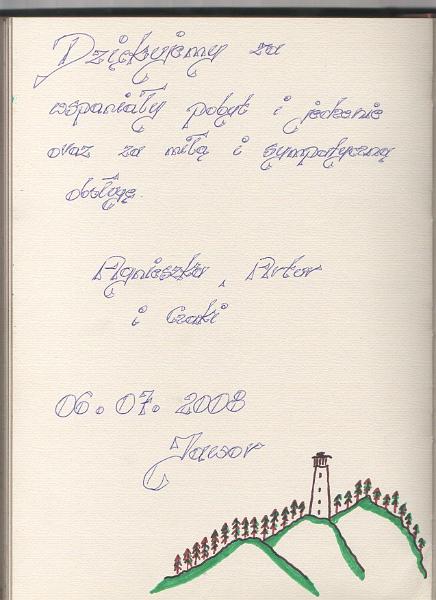 Dziękujemy za
wspaniały pobyt i jedzenie
oraz za miłą i sympatyczną
obsługę.
Agnieszka, Artur
i Czaki
06.07.2008
Jawor